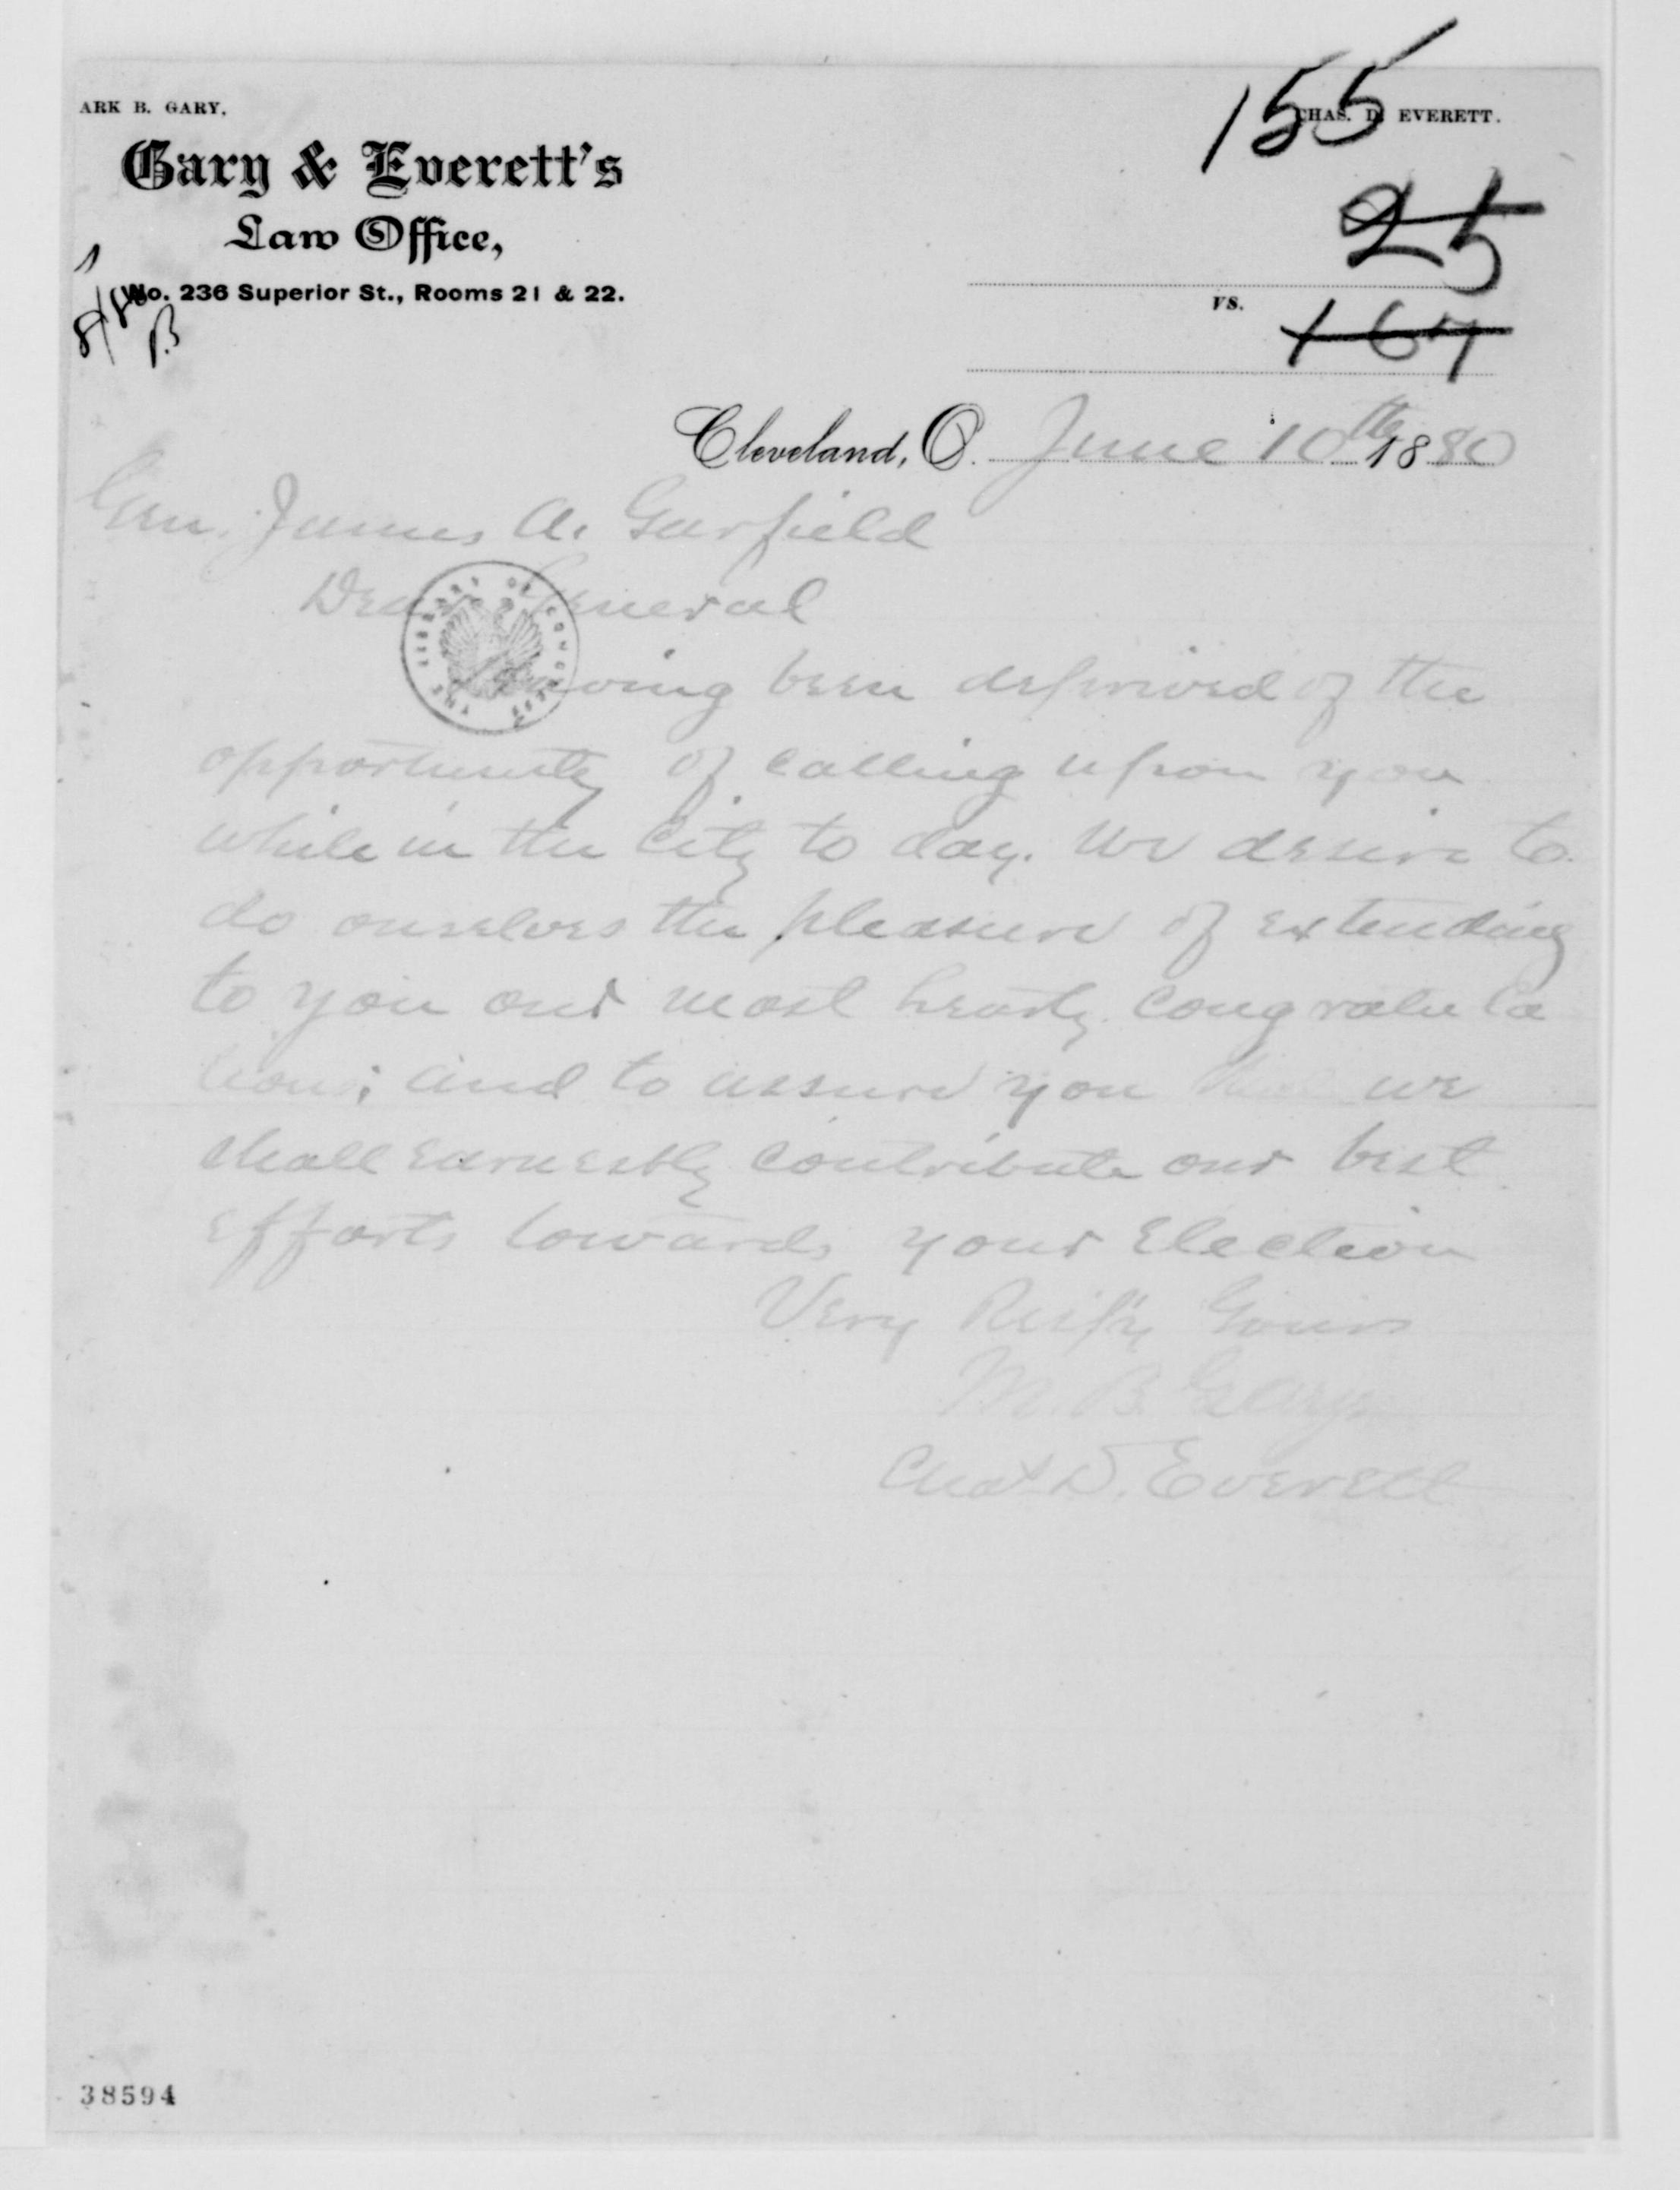 ARK B. GARY.
CHAS. D. EVERETT.
155
Gary & Everett's
Law Office,
No. 236 Superior St., Rooms 21 & 22.
25
vs.
164
Cleveland, O. June 10th 1880
Gen. James A. Garfield
Dear General
Having been deprived of the
opportunity of calling upon you
while in the City to day. We desire to
do ourselves the pleasure of extending
to you our most hearty congratula
tions; and to assure you that we
shall earnestly contribute our best
efforts towards your Election
Very Resp'y Yours
M. B. Gary
Chas D. Everett
THE LIBRARY OF CONGRESS
38594